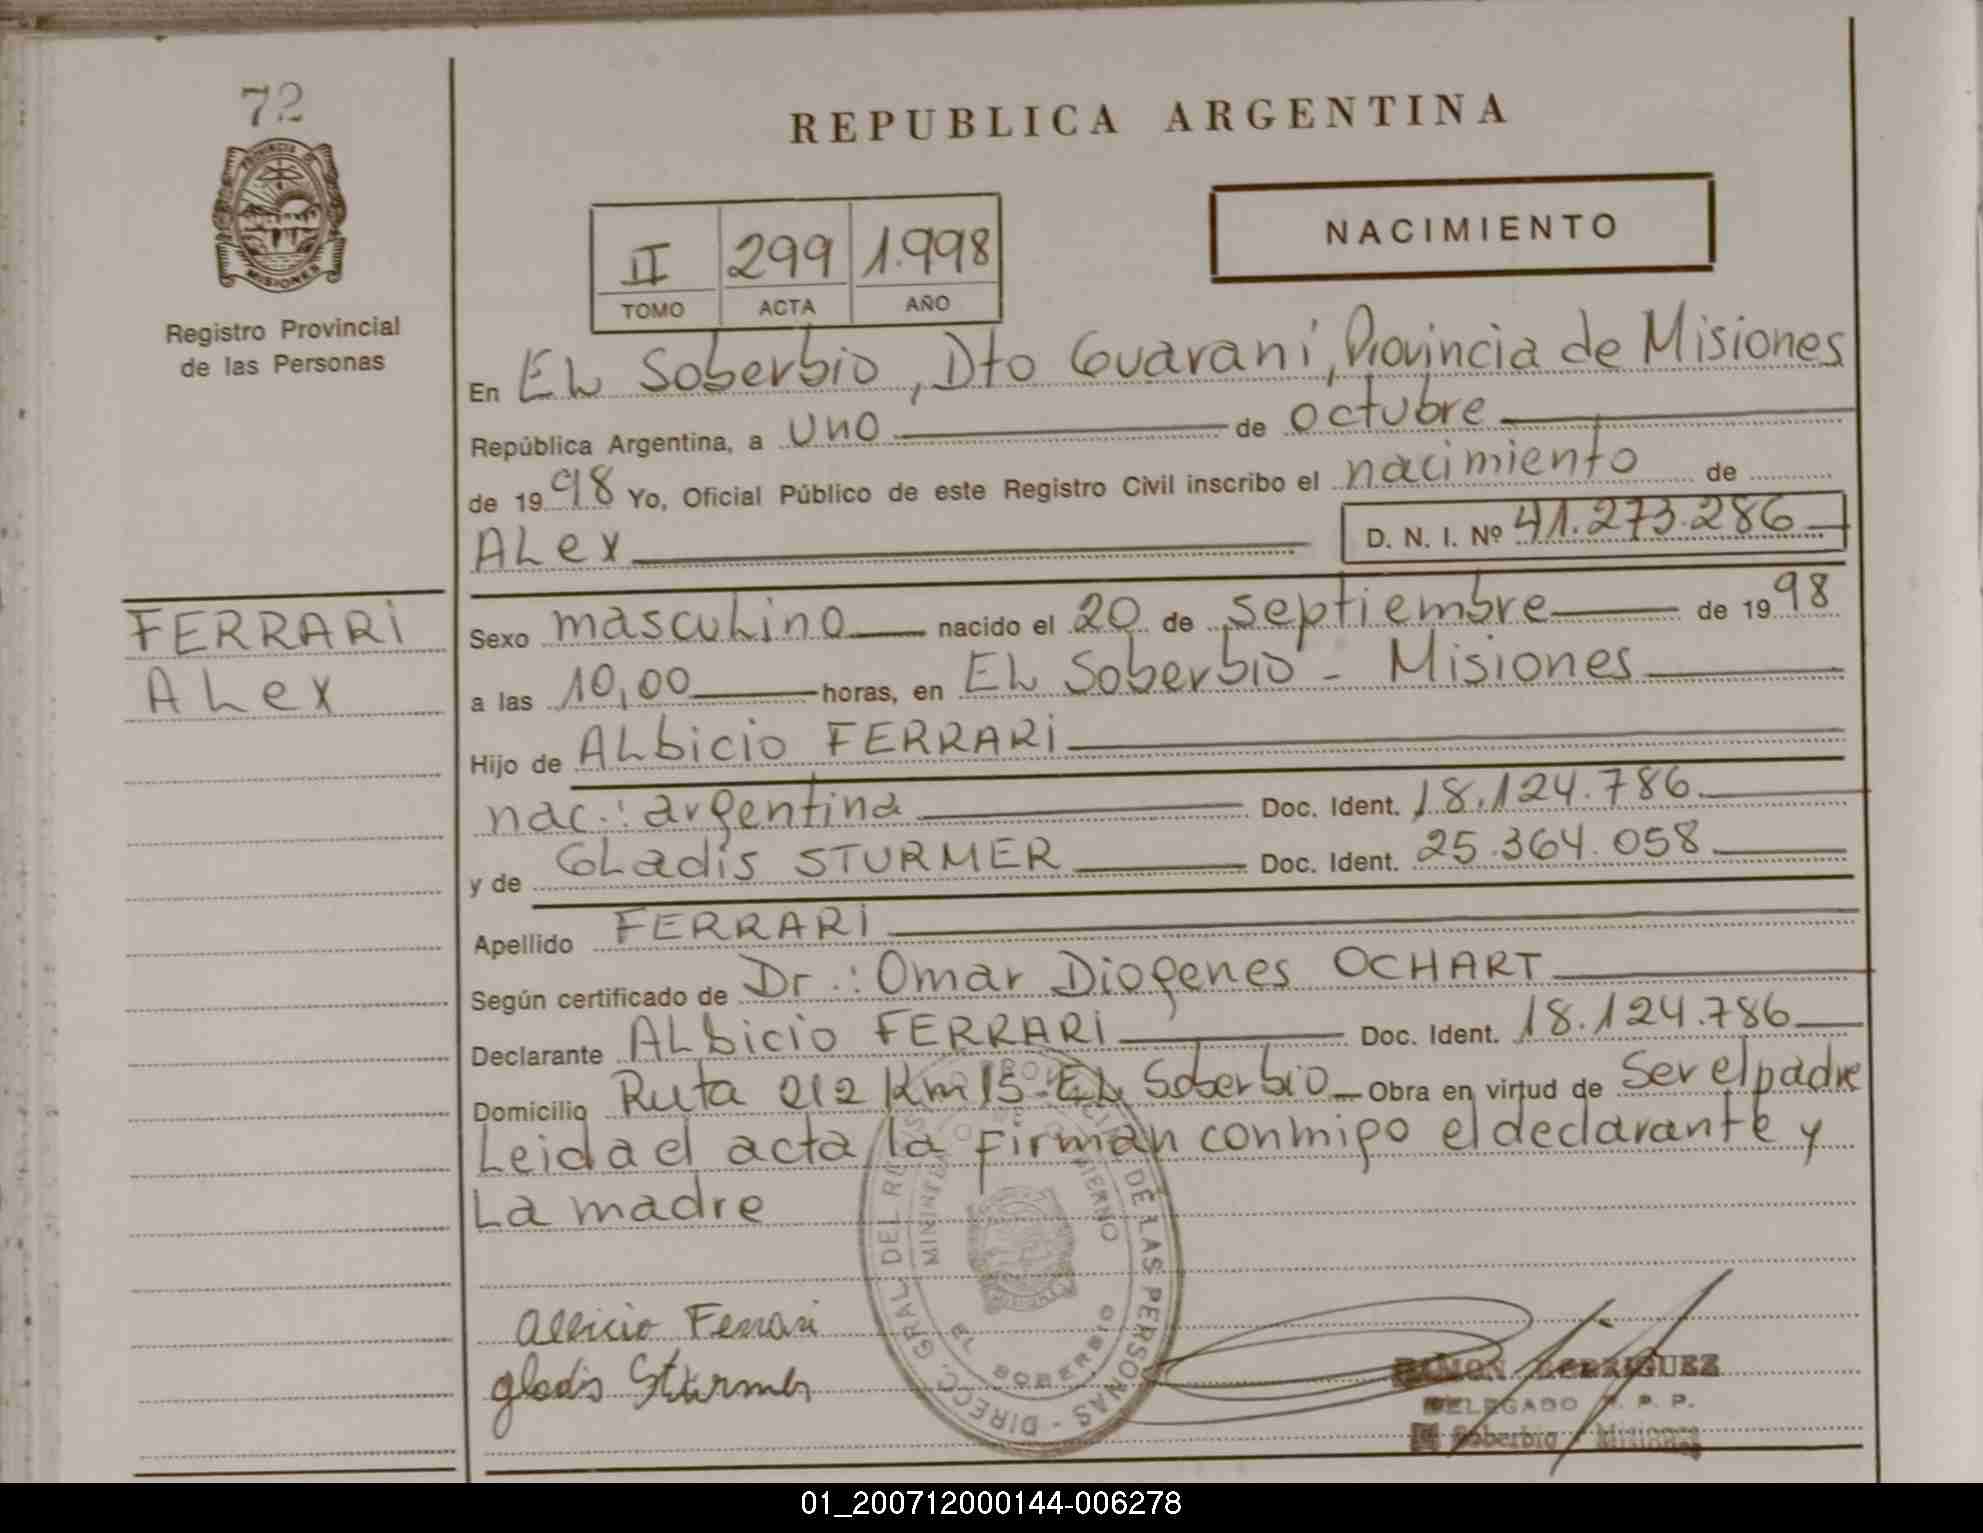 72
REPUBLICA ARGENTINA
PROVINCIA DE
MISIONES
Registro Provincial
de las Personas
NACIMIENTO
II 299 1.998
TOMO ACTA AÑO
En EL Soberbio, Dto Guarani, Provincia de Misiones
República Argentina, a uno de octubre
de 1998 Yo, Oficial Público de este Registro Civil inscribo el nacimiento de
ALex D. N. I. Nº 41.273.286
FERRARI
ALex
Sexo mascuLino nacido el 20 de septiembre de 1998
a las 10,00 horas, en EL Soberbio - Misiones
Hijo de ALbicio FERRARI
nac.: argentina Doc. Ident. 18.124.786
y de GLadis STURMER Doc. Ident. 25.364.058
Apellido FERRARI
Según certificado de Dr.: Omar Diogenes OCHART
Declarante ALbicio FERRARI Doc. Ident. 18.124.786
Domicilio Ruta 212 Km 15-EL Soberbio Obra en virtud de Ser el padre
Leida el acta la firman conmigo el declarante y
La madre
DIRECC. GRAL DEL DE LAS PERSONAS
EL SOBERBIO
Albicio Ferrari
gladis Sturmer
RAMON RODRIGUEZ
DELEGADO R. P. P.
El Soberbio Misiones
01_200712000144-006278